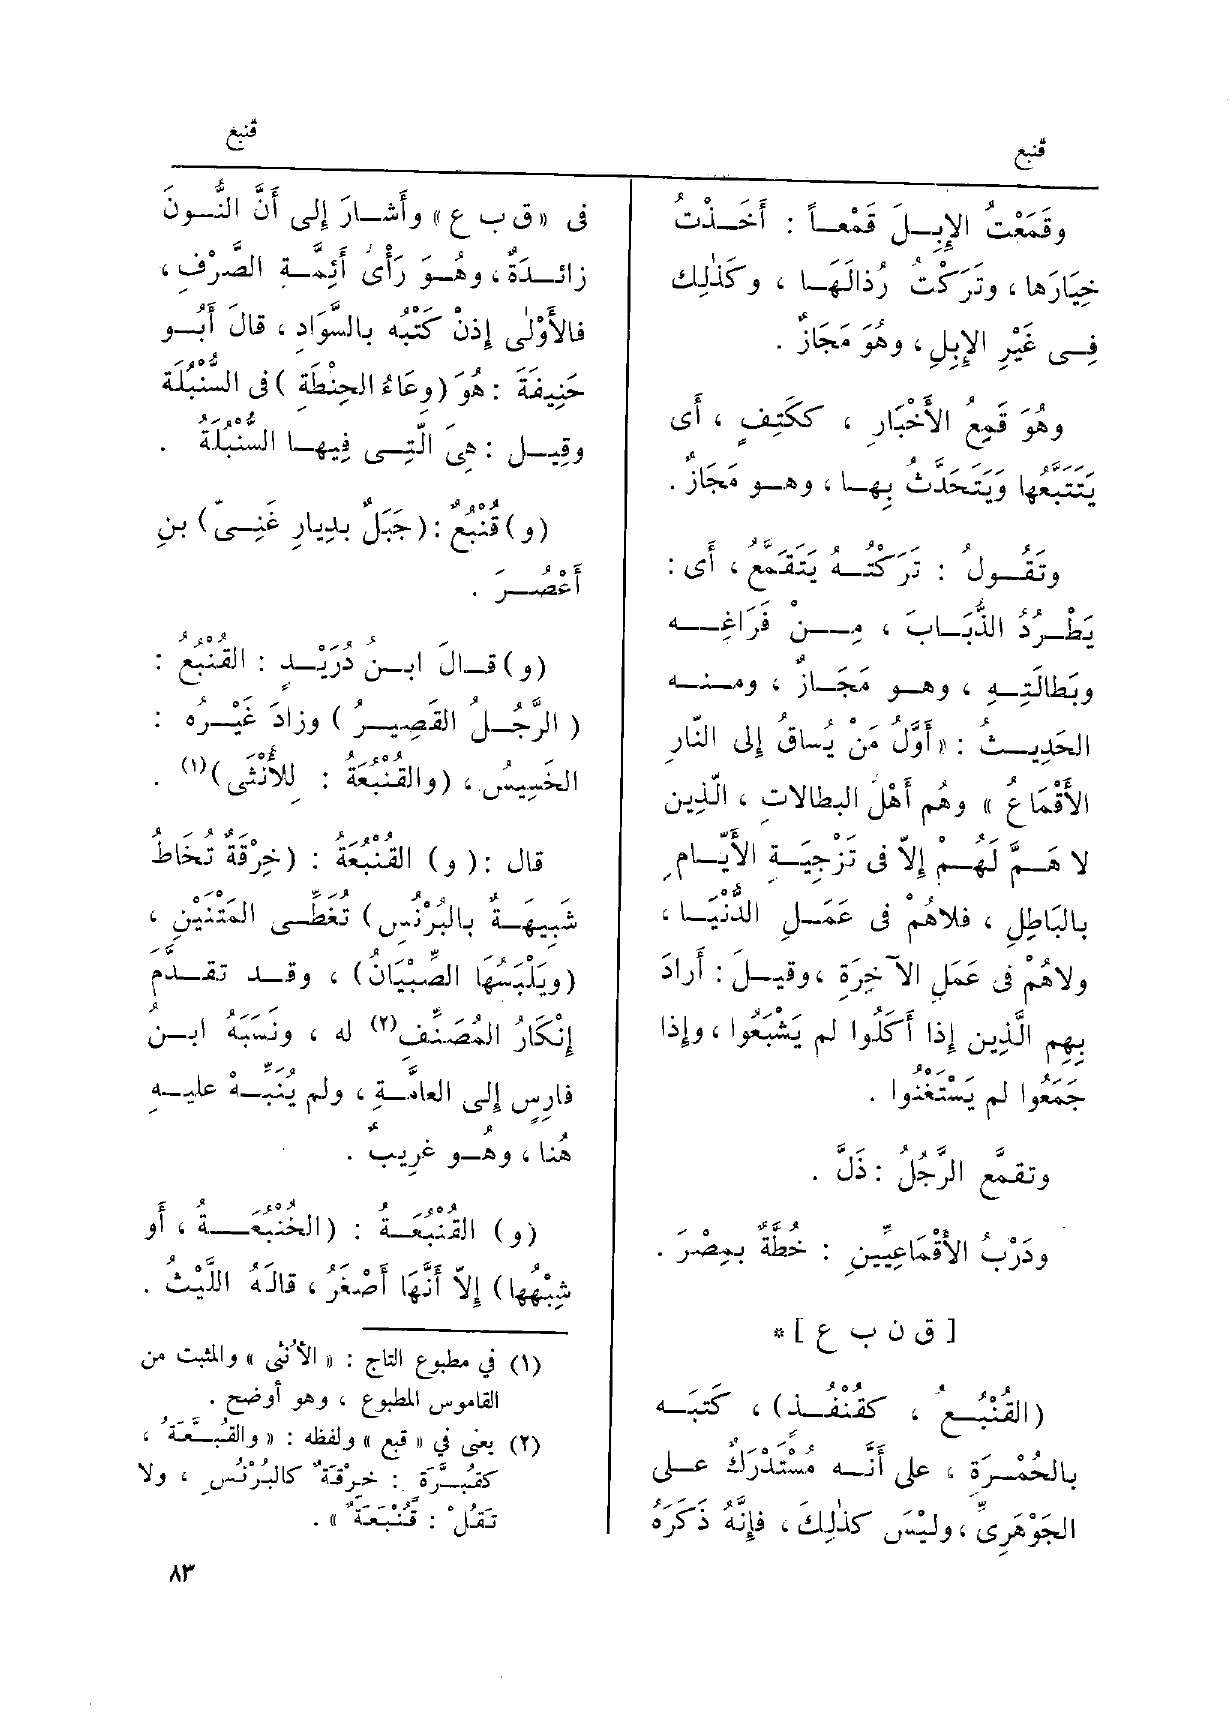 قنبع
قنبع
وقَمَعْتُ الإِبِلَ قَمْعاً : أَخَذْتُ
خِيَارَها ، وتَرَكْتُ رُذالَهَا ، وكَذٰلِك
فِى غَيْرِ الإِبِلِ ، وهُوَ مَجَازٌ .
وهُوَ قَمِعُ الأَخْبَارِ ، ككَتِفٍ ، أَى
يَتَتَبَّعُها وَيَتَحَدَّثُ بِها ، وهو مَجَازٌ .
وتَقُولُ : تَرَكْتُهُ يَتَقَمَّعُ ، أَى :
يَطْرُدُ الذُّبَابَ ، مِنْ فَرَاغِه
وبَطالَتِهِ ، وهو مَجَازٌ ، ومنه
الحَدِيثُ : « أَوَّلُ مَنْ يُساقُ إِلى النّارِ
الأَقْمَاعُ » وهُم أَهْلُ البطالاتِ ، الَّذِين
لا هَمَّ لَهُمْ إِلاّ فى تَزْجِيَةِ الأَيّامِ
بالبَاطِلِ ، فلاهُمْ فى عَمَلِ الدُّنْيَا ،
ولاهُمْ فى عَمَلِ الآخِرَةِ ، وقيلَ : أَرادَ
بِهِم الَّذِين إِذا أَكَلُوا لم يَشْبَعُوا ، وإِذا
جَمَعُوا لم يَسْتَغْنُوا .
وتقمَّع الرَّجُلُ : ذَلَّ .
ودَرْبُ الأَقْمَاعِيِّينِ : خُطَّةٌ بمِصْرَ .
[ ق ن ب ع ] *
(القُنْبُعُ ، كقُنْفُذٍ) ، كَتبَه
بالحُمْرَةِ ، على أَنَّه مُسْتَدْرَكٌ على
الجَوْهَرِىِّ ، وليْسَ كذٰلِكَ ، فإِنَّهُ ذَكَرَهُ
فى « ق ب ع » وأَشارَ إِلى أَنَّ النُّونَ
زائدَةٌ ، وهُوَ رَأْىُ أَئِمَّةِ الصَّرْفِ ،
فالأَوْلٰى إِذنْ كَتْبُه بالسَّوَادِ ، قالَ أَبُو
حَنِيفَةَ : هُوَ (وِعَاءُ الحِنْطَةِ ) فى السُّنْبُلَة
وقِيل : هِىَ الَّتِى فِيها السُّنْبُلَةُ .
(و) قُنْبُعٌ : (جَبَلٌ بدِيارِ غَنِىّ) بنِ
أَعْصُرَ .
(و) قالَ ابنُ دُرَيْدٍ : القُنْبُعُ :
( الرَّجُلُ القَصِيرُ ) وزادَ غَيْرُه :
الخَسِيسُ ، (والقُنْبُعَةُ : لِلأُنْثَى)(١) .
قال : ( و ) القُنْبُعَةُ : (خِرْقَةٌ تُخَاطُ
شَبِيهَةٌ بالبُرْنُسِ) تُغَطِّى المَتْنَيْنِ ،
(ويَلْبَسُهَا الصِّبْيَانُ) ، وقد تقدَّم
إِنْكَارُ المُصَنِّفِ(٢) له ، ونَسَبَهُ ابنُ
فارِسٍ إِلى العامَّةِ ، ولم يُنَبِّهْ عليهِ
هُنا ، وهُو غرِيبٌ .
(و) القُنْبُعَةُ : (الخُنْبُعَةُ ، أَو
شِبْهُها) إِلاّ أَنَّهَا أَصْغَرُ ، قالَهُ اللَّيْثُ .
(١) في مطبوع التاج : « الأُنْثى » والمثبت من
القاموس المطبوع ، وهو أوضح .
(٢) يعنى في « قبع » ولفظه : « والقُبَّعَةُ ،
كقُبَّرَة : خرْقَةٌ كالبُرْنُسِ ، ولا
تَقُلْ : قُنْبَعَةٌ » .
٨٣